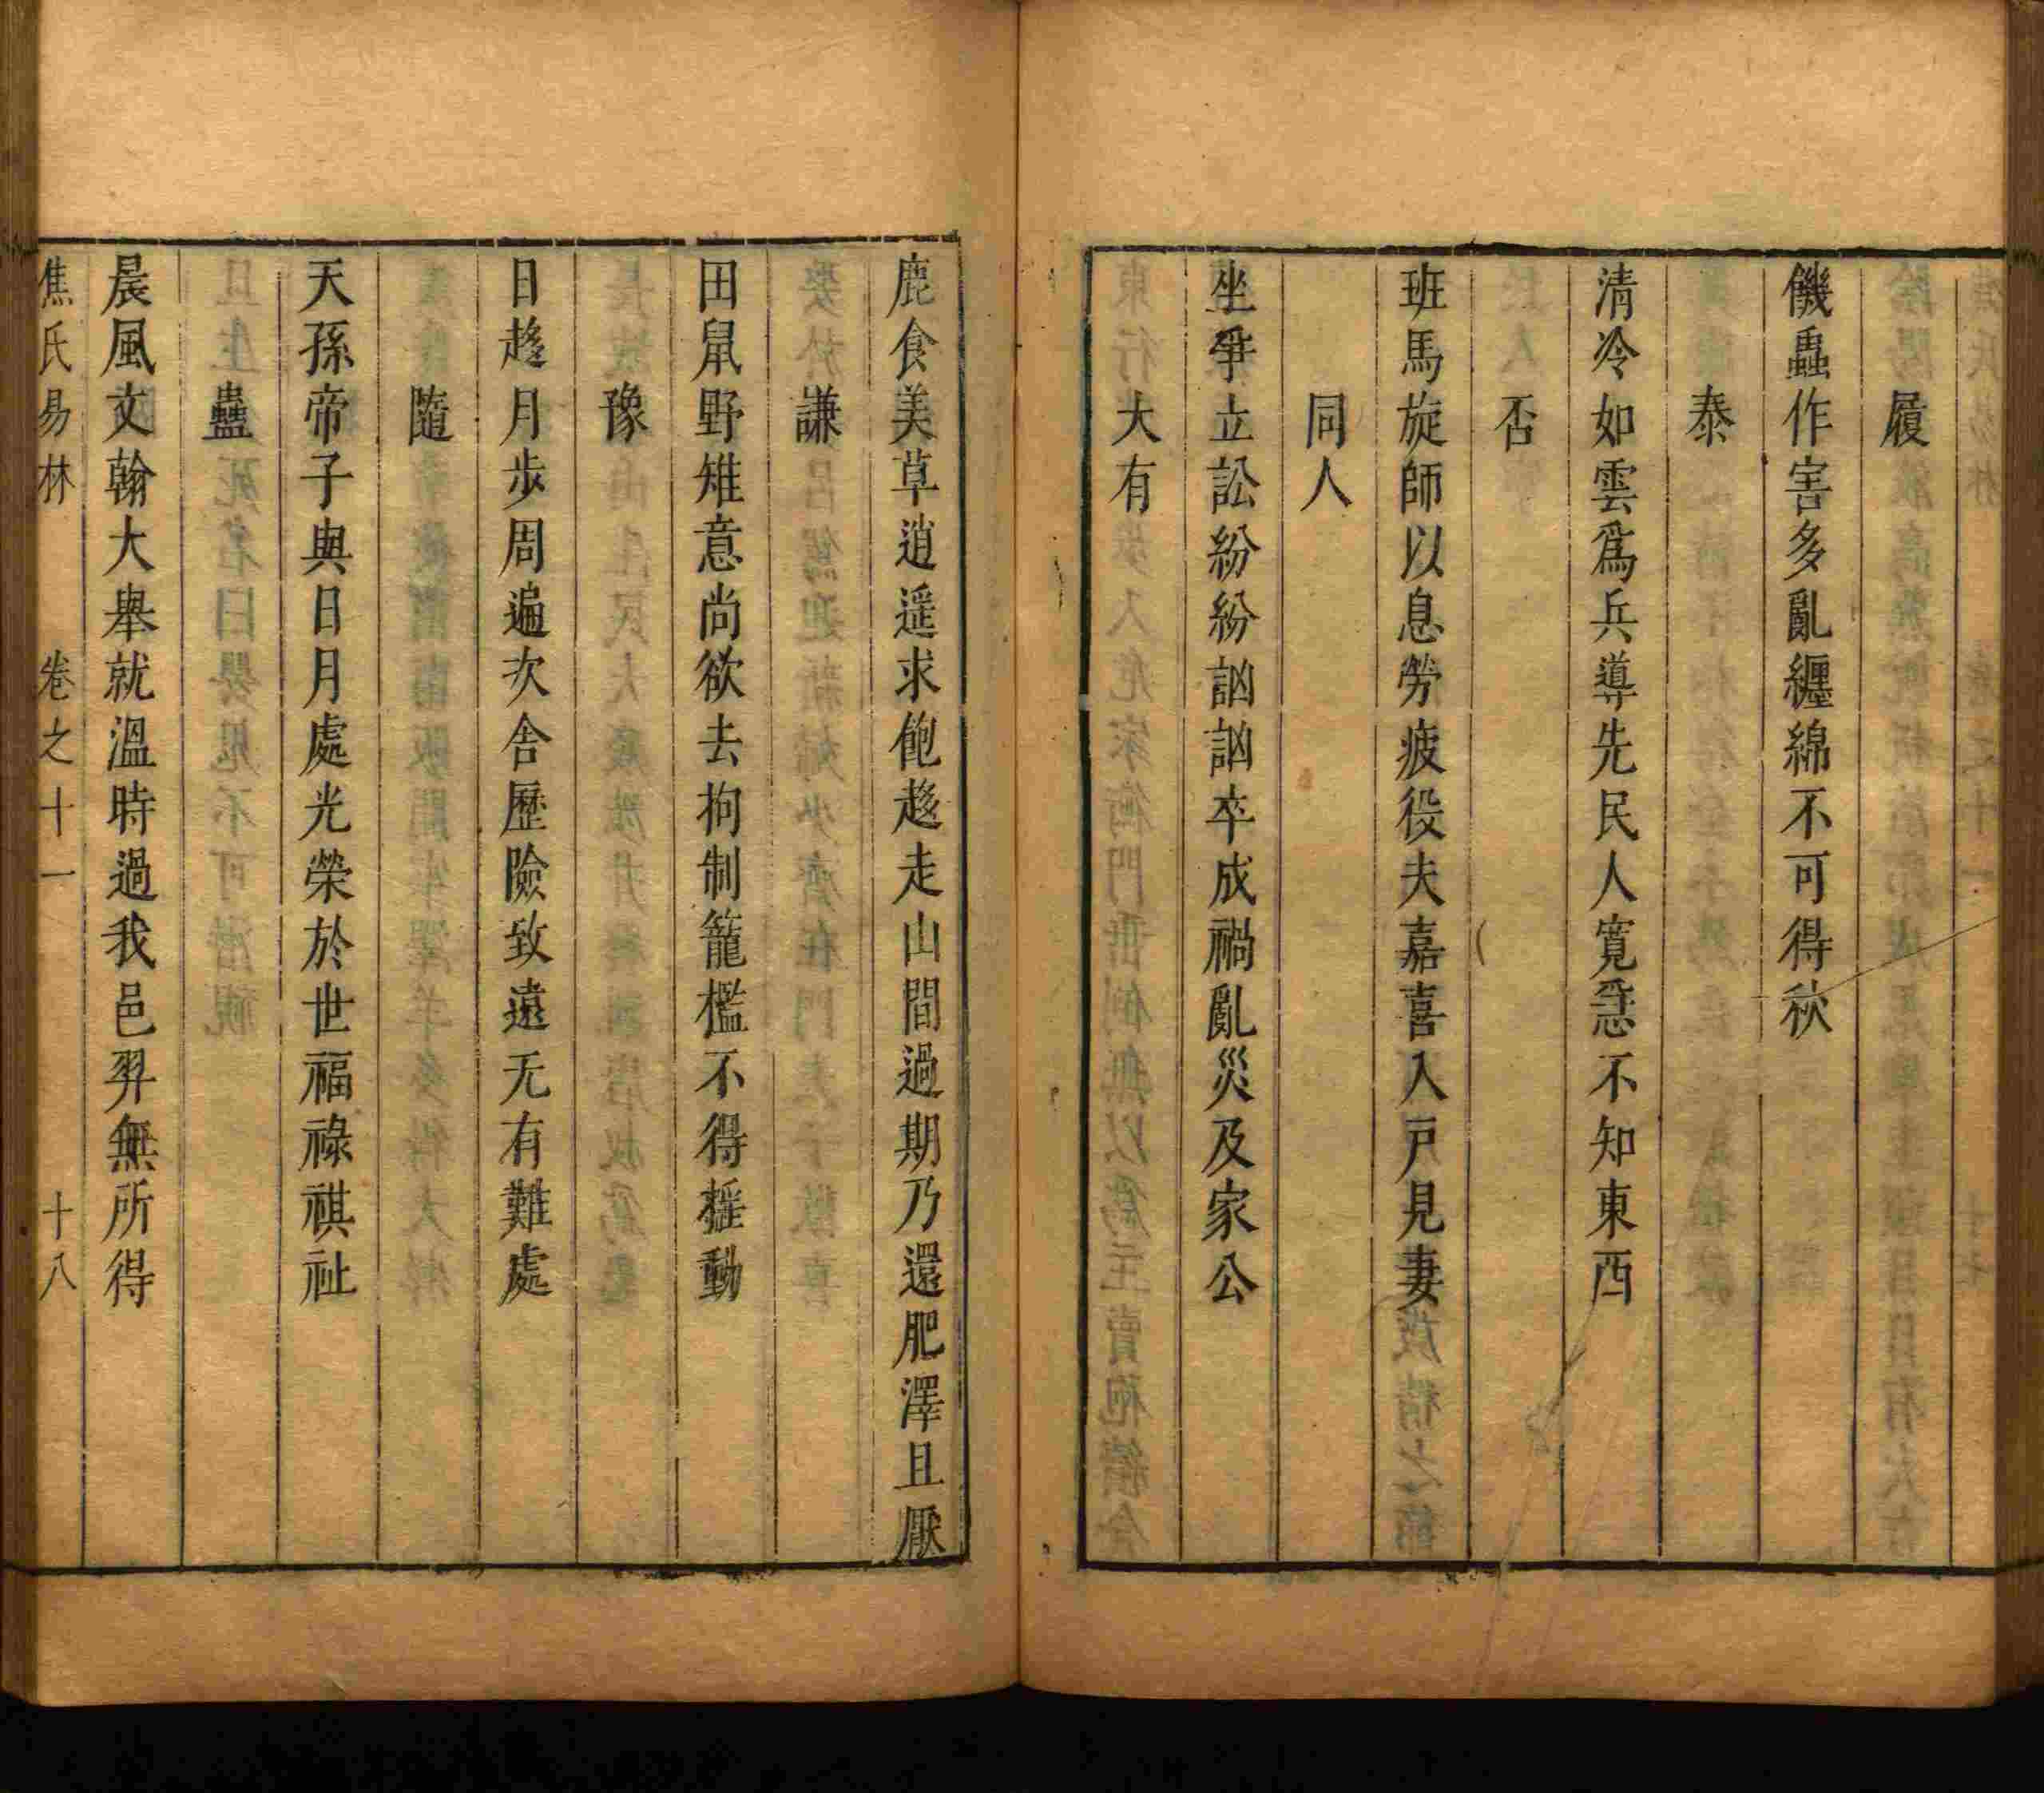 履
饑蟲作害多亂纏綿不可得秋
泰
清冷如雲爲兵導先民人寛急不知東西
否
班馬旋師以息勞疲役夫嘉喜入戸見妻
同人
坐爭立訟紛紛訩訩卒成禍亂災及家公
大有
鹿食美草逍遥求飽趍走山間過期乃還肥澤且厭
謙
田鼠野雉意尚欲去拘制籠檻不得搖動
豫
日趍月步周遍次舍歷險致遠无有難處
隨
天孫帝子與日月處光榮於世福祿祺祉
蠱
晨風文翰大舉就溫時過我邑羿無所得
焦氏易林 卷之十一 十八